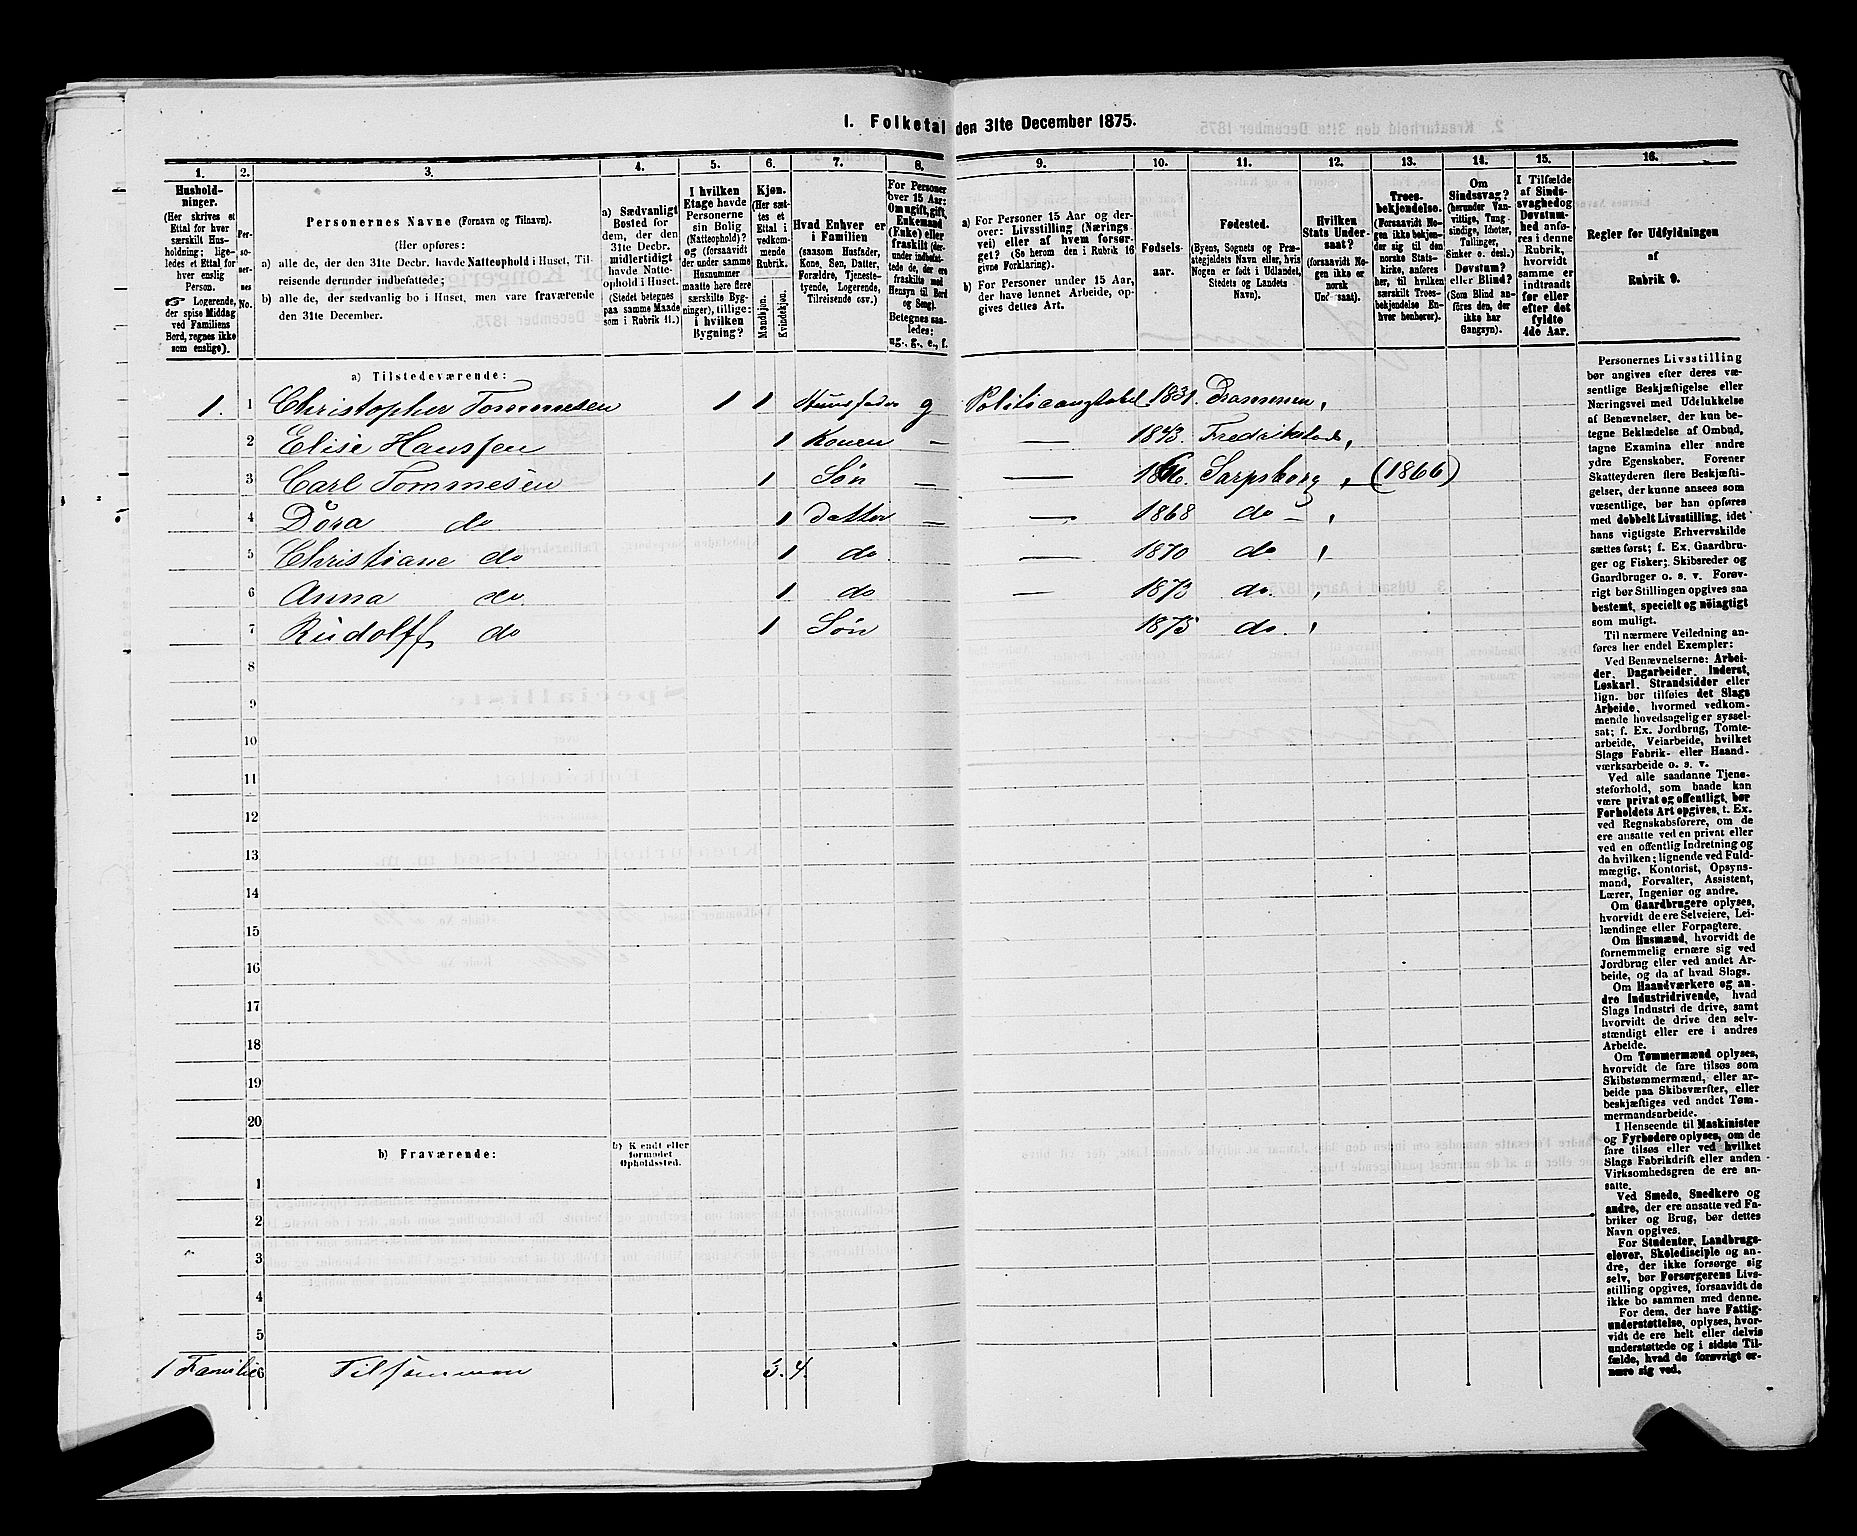 I. Folketal den 31te December 1875.
1. 2. 3. 4. 5. 6. 7. 8. 9. 10. 11. 12. 13. 14. 15. 16.
Hushold-
ninger.
(Her skrives et
Ettal for hver
særskilt Hus-
holdning; lige-
ledes et Ettal for
hver enslig
Person.
☞ Logerende,
der spise Middag
ved Familiens
Bord, regnes ikke
som enslige).
Per-
so-
ner-
nes
No.
Personernes Navne (Fornavn og Tilnavn).
(Her opføres:
a) alle de, der den 31te Decbr. havde Natteophold i Huset, Til-
reisende derunder indbefattede;
b) alle de, der sædvanlig bo i Huset, men vare fraværende
den 31te December.
a) Sædvanligt
Bosted for
dem, der den
31te Decbr.
midlertidigt
havde Natte-
ophold i Huset.
(Stedet betegnes
paa samme Maade
som i Rubrik 11.)
I hvilken
Etage havde
Personerne
sin Bolig
(Natteophold)?
(forsaavidt
der under samme
Husnummer
maatte høre flere
særskilte Byg-
ninger), tillige:
i hvilken
Bygning?
Kjøn.
(Her sæt-
tes et
Ettal i
vedkom-
mende
Rubrik.
Mandkjøn.
Kvindekjøn.
Hvad Enhver er
i Familien
(saasom Husfader,
Kone, Søn, Datter,
Forældre, Tjeneste-
tyende, Logerende,
Tilreisende osv.)
For Personer
over 15 Aar:
Om ugift, gift,
Enkemand
(Enke) eller
fraskilt (der-
under indbefat-
tede de, der ere
fraskilte med
Hensyn til Bord
og Seng).
Betegnes saa-
ledes:
ug., g., e., f.
a) For Personer 15 Aar og der-
over: Livsstilling (Nærings-
vei) eller af hvem forsør-
get? (Se herom den i Rubrik 16
givne Forklaring).
b) For Personer under 15 Aar,
der have lønnet Arbeide, op-
gives dettes Art.
Fødsels-
aar.
Fødested.
(Byens, Sognets og Præ-
stegjeldets Navn eller, hvis
Nogen er født i Udlandet,
Stedets og Landets
Navn).
Hvilken
Stats Under-
saat?
(forsaavidt No-
gen ikke er
norsk
Undersaat).
Troes-
bekjendelse.
(Forsaavidt No-
gen ikke bekjen-
der sig til den
norske Stats-
kirke, anføres
her, til hvilken
særskilt Troes-
bekjendelse En-
hver henhører).
Om
Sindssvag?
(herunder Van-
vittige, Tung-
sindige, Idioter,
Tullinger,
Sinker o. desl.)
Døvstum?
eller Blind?
(Som Blind an-
føres den, der
ikke har
Gangsyn).
I Tilfælde
af Sinds-
svaghed og
Døvstum-
hed anfø-
res i denne
Rubrik,
hvorvidt
samme er
indtraadt
før eller
efter det
fyldte
4de Aar.
Regler for Udfyldningen
af
Rubrik 9.
a) Tilstedeværende:
1. 1 Christopher Tommesen 1 1 Huusfader g Politieconstabel 1831. Drammen,
2 Elise Hanssen 1 Konen — — 1843. Fredrikstad,
3 Carl Tommesen 1 Søn — — 1866. Sarpsborg, — (1866)
4 Dora do 1 Datter — — 1868 do — ,
5 Christiane do 1 do — 1870 do ,
6 Anna do. 1 do — 1873 do. ,
7 Rudolff do 1 Søn 1875 do. ,
8
9
10
11
12
13
14
15
16
17
18
19
20
b) Fraværende:
b) Kjendt eller
formodet
Opholdssted.
1
2
3
4
5
1 Familie 6 Tilsammen 3. 4.
Personernes Livsstilling
bør angives efter deres væ-
sentlige Beskjæftigelse eller
Næringsvei med Udelukkelse
af Benævnelser, der kun be-
tegne Beklædelse af Ombud,
tagne Examina eller andre
ydre Egenskaber. Forener
Skatteyderen flere Beskjæfti-
gelser, der kunne ansees som
væsentlige, bør han opføres
med dobbelt Livsstilling, idet
hans vigtigste Erhvervskilde
sættes først; f. Ex. Gaardbru-
ger og Fisker; Skibsreder og
Gaardbruger o. s. v. Forøv-
rigt bør Stillingen opgives saa
bestemt, specielt og nöiagtigt
som muligt.
Til nærmere Veiledning an-
føres her endel Exempler:
Ved Benævnelserne: Arbei-
der, Dagarbeider, Inderst,
Løskarl, Strandsidder eller
lign. bør tilføies det Slags
Arbeide, hvormed vedkom-
mende hovedsagelig er syssel-
sat; f. Ex. Jordbrug, Tomte-
arbeide, Veiarbeide, hvilket
Slags Fabrik- eller Haand-
værksarbeide o. s. v.
Ved alle saadanne Tjene-
steforhold, som baade kan
være privat og offentligt, bør
Forholdets Art opgives, t. Ex.
ved Regnskabsførere, om de
ere ansatte ved en privat eller
ved en offentlig Indretning og
da hvilken; lignende ved Fuld-
mægtig, Kontorist, Opsyns-
mand, Forvalter, Assistent,
Lærer, Ingeniør og andre.
Om Gaardbrugere oplyses,
hvorvidt de ere Selveiere, Lei-
lændinge eller Forpagtere.
Om Husmænd, hvorvidt de
fornemmelig ernære sig ved
Jordbrug eller ved andet Ar-
beide, og da af hvad Slags.
Om Haandværkere og an-
dre Industridrivende, hvad
Slags Industri de drive, samt
hvorvidt de drive den selv-
stændigt eller ere i andres
Arbeide.
Om Tømmermænd oplyses,
hvorvidt de fare tilsøs som
Skibstømmermænd, eller ar-
beide paa Skibsværfter, eller
beskjæftiges ved andet Tøm-
mermandsarbeide.
I Henseende til Maskinister
og Fyrbødere oplyses, om de
fare tilsøs eller ved hvilket
Slags Fabrikdrift eller anden
Virksomhedsgren de ere an-
satte.
Ved Smede, Snedkere og
andre, der ere ansatte ved Fa-
briker og Brug, bør dettes
Navn opgives.
For Studenter, Landbrugs-
elever, Skoledisciple og an-
dre, der ikke forsørge sig
selv, bør Forsørgerens Livs-
stilling opgives, forsaavidt de
ikke bo sammen med denne.
For dem, der have Fattig-
understøttelse, oplyses, hvor-
vidt de ere helt eller delvis
understøttede og i sidste Til-
fælde, hvad de forøvrigt er-
nære sig ved.